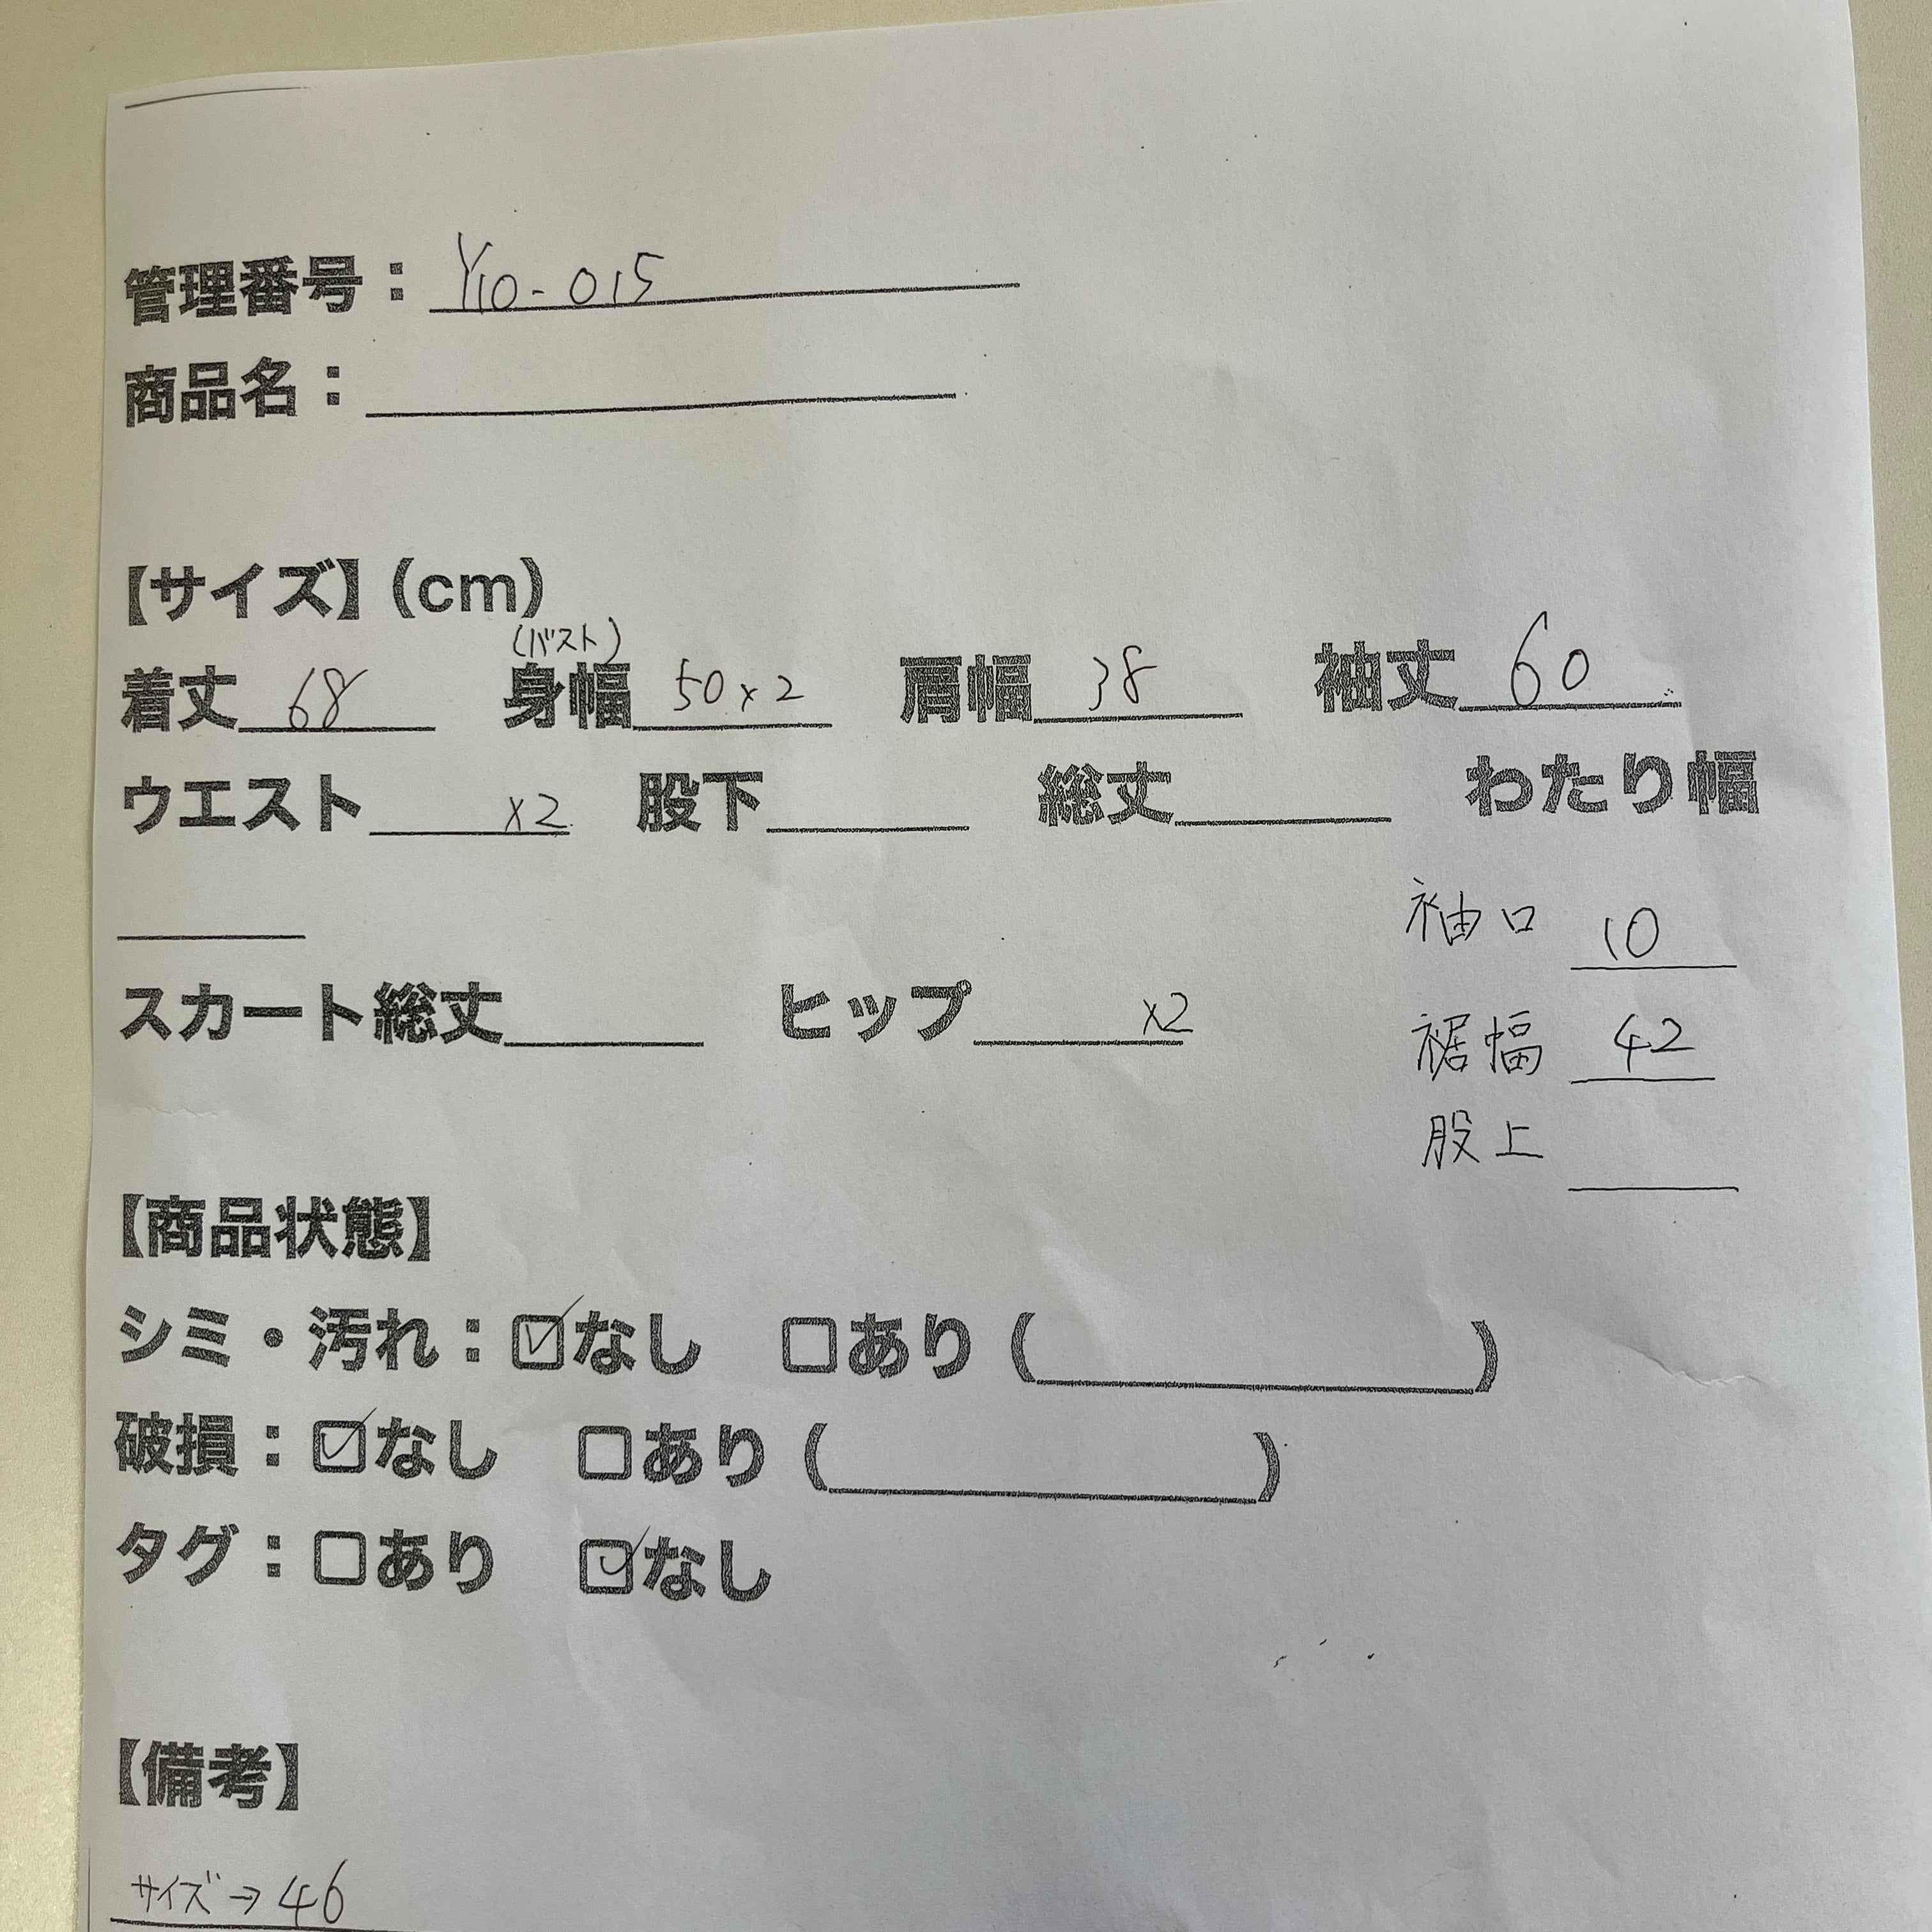 管理番号：Y10-015
商品名：
【サイズ】(cm)
(バスト)
着丈 68 身幅 50×2 肩幅 38 袖丈 60
ウエスト ×2 股下 総丈 わたり幅
袖口 10
スカート総丈 ヒップ ×2
裾幅 42
股上
【商品状態】
シミ・汚れ：☑なし □あり( )
破損：☑なし □あり( )
タグ：□あり ☑なし
【備考】
サイズ→46